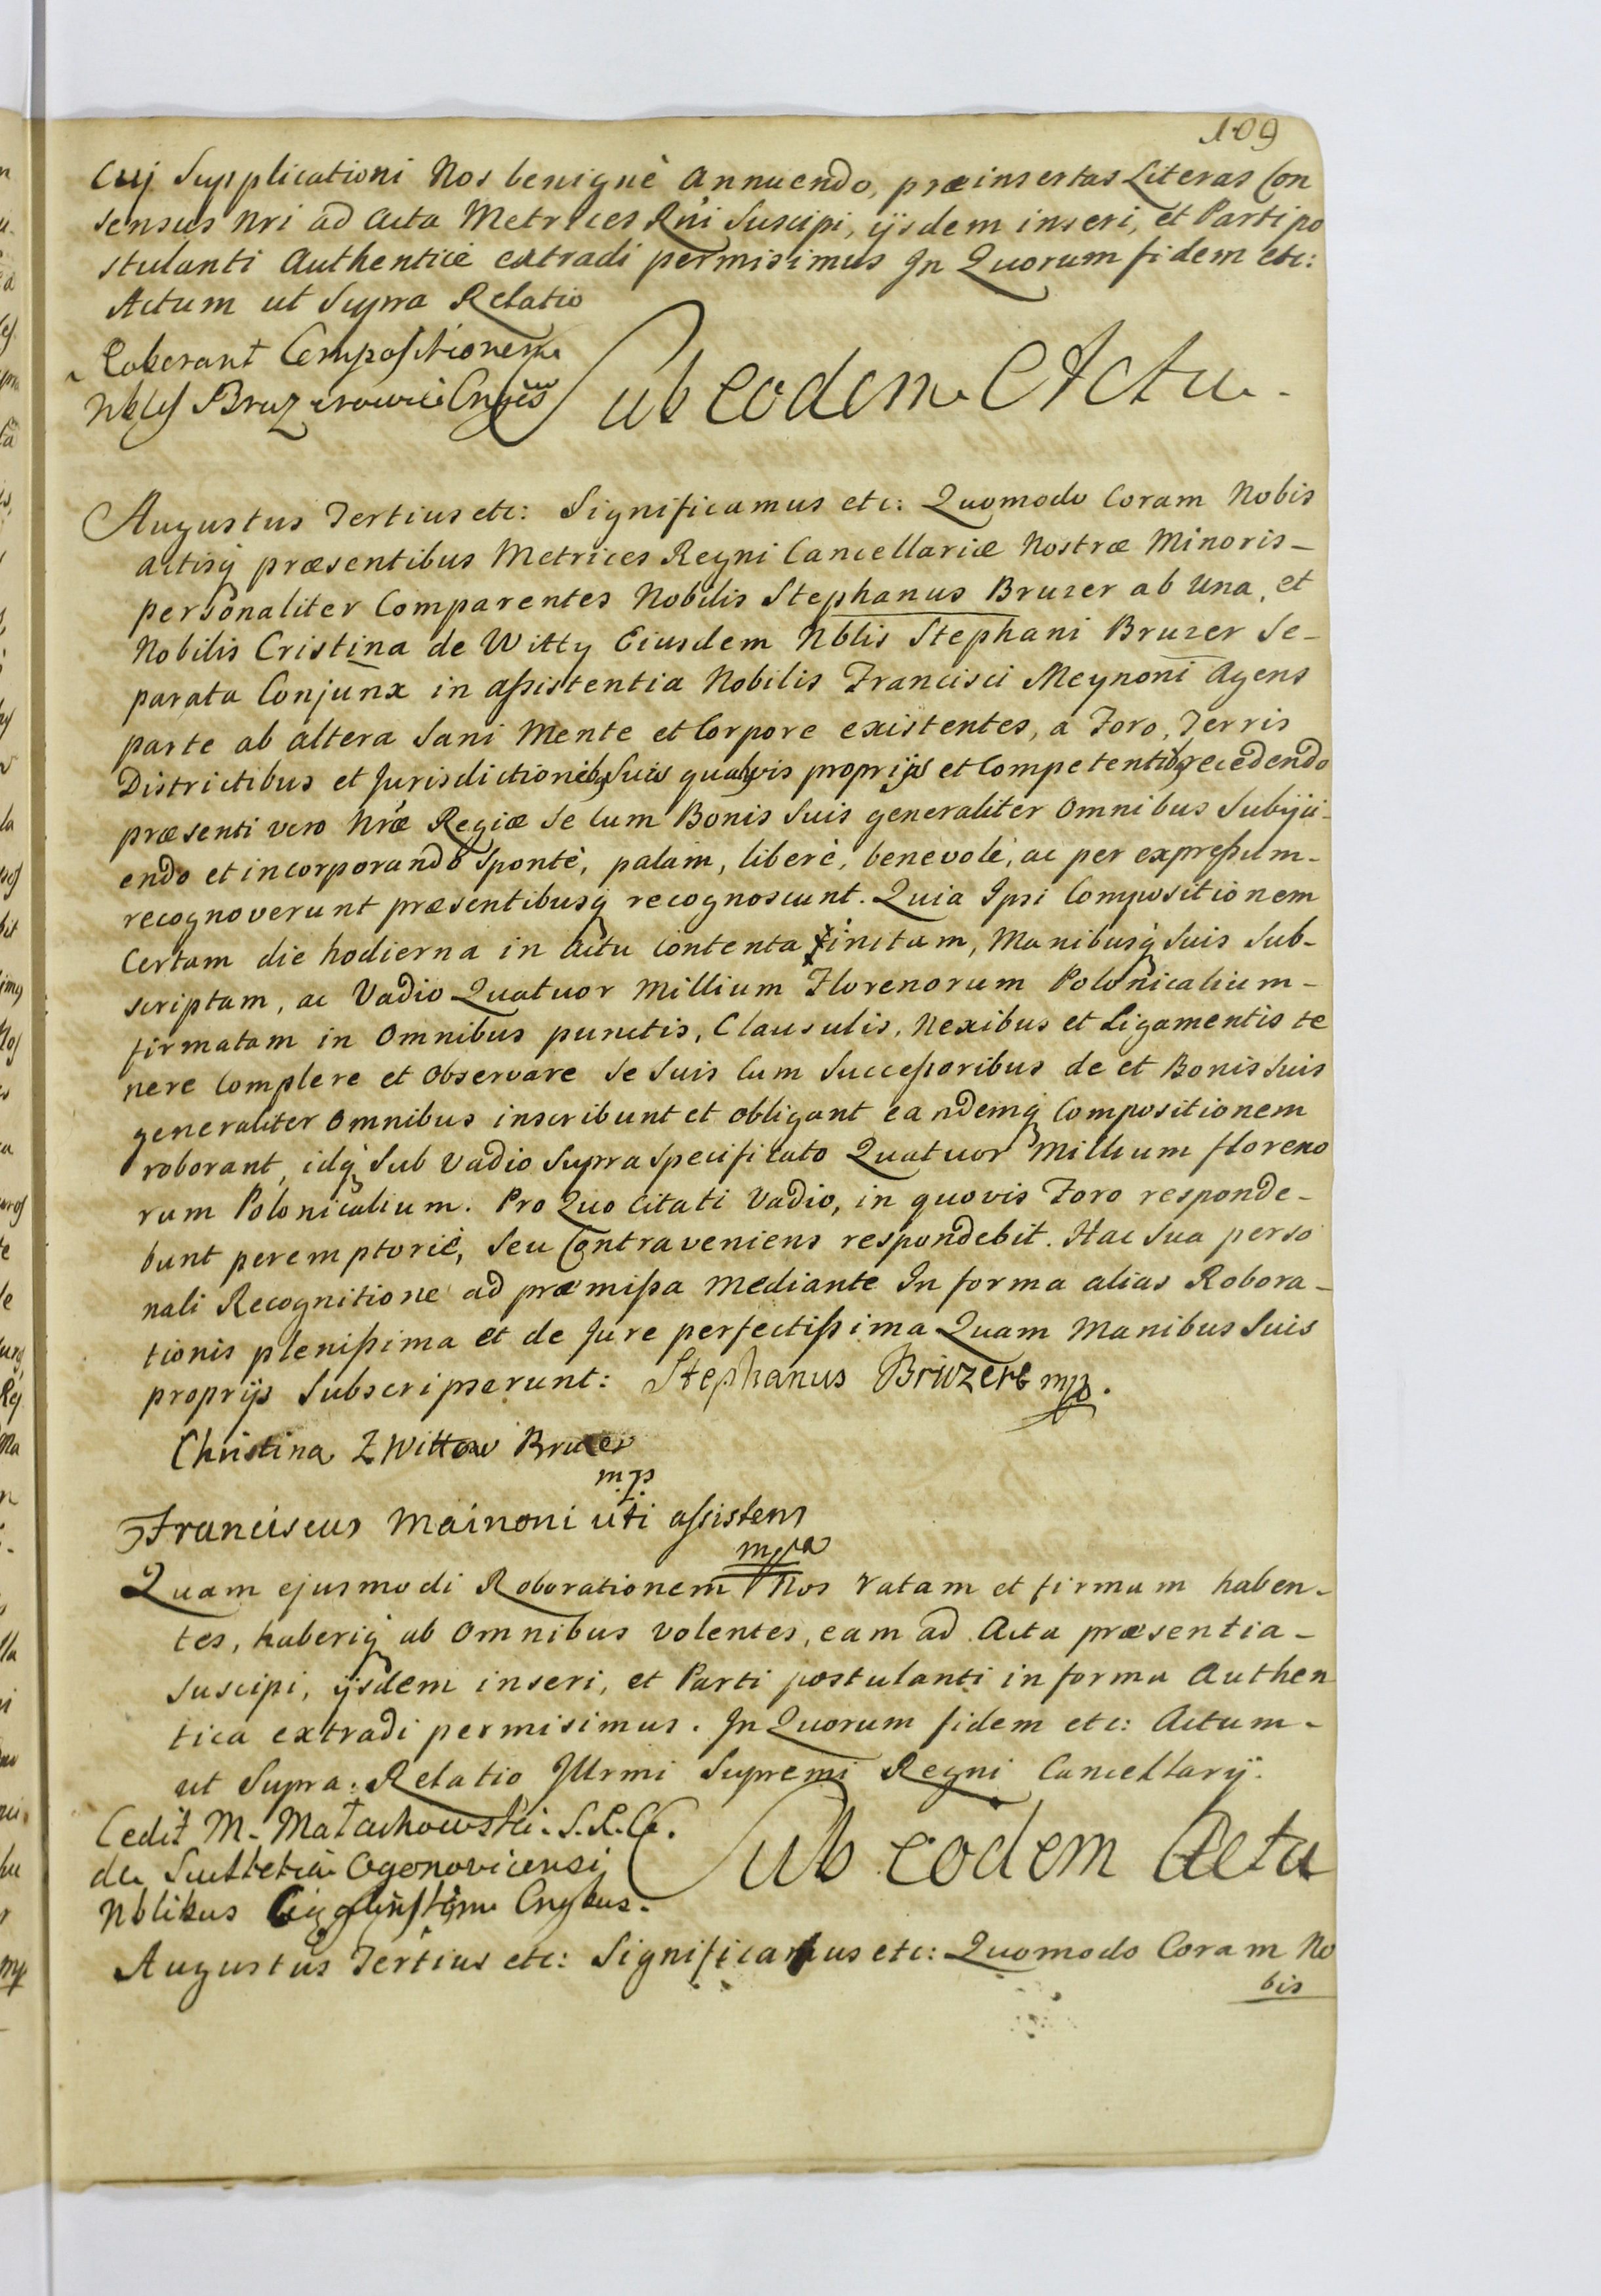 109
Cuj Supplicationi Nos benignè annuendo, præinsertas Literas Con
sensus nri ad acta Metrices Rni Suscipi, ijsdem inseri, et Parti po
stulanti Authenticè extradi permisimus In Quorum fidem etc:
Actum ut Supra Relatio
Roborant Compositionem
Nbles Bruzerowie Cnges
Sub eodem Actu
Augustus Tertius etc: Significamus etc: Quomodo Coram Nobis
actisq præsentibus Metrices Regni Cancellariæ Nostræ Minoris –
personaliter Comparentes Nobilis Stephanus Bruzer ab Una, et
Nobilis Cristina de Witty Eiusdem Nblis Stephani Bruzer Se-
parata Conjunx in assistentia Nobilis Francisci Meynoni Agens
parte ab altera Sani Mente et Corpore existentes, a Foro, Terris
Districtibus et Jurisdictionibq Suis quibqvis proprijs et Competentibq recedendo
præsenti vero Nræ Regiæ Se cum Bonis Suis generaliter Omnibus Subijci-
endo et incorporando Spontè, palam, liberè, benevolè, ac per expressum –
recognoverunt præsentibusq recognoscunt. Quia Ipsi Compositionem
Certam die hodierna in Actu contenta initam, Manibusq Suis Sub-
scriptam, ac Vadio Quatuor Millium Florenorum Polonicalium –
firmatam in Omnibus punctis, Clausulis, Nexibus et Ligamentis te
nere Complere et Observare Se Suis Cum Successoribus de et Bonis Suis
generaliter Omnibus inscribunt et obligant eandemq Compositionem
roborant, idq Sub Vadio Supra specificato Quatuor Millium floreno
rum Polonicalium. Pro Quo Citati Vadio, in quovis Foro responde-
bunt peremptoriè, Seu Contraveniens respondebit. Hac Sua perso
nali Recognitione ad præmissa Mediante In forma alias Robora-
tionis plenissima et de Jure perfectissima Quam Manibus Suis
proprijs Subscripserunt: Stephanus Bruzer mp.
Christina Z Wittow Bruzer
m.p.
Franciscus Mainoni uti assistens
mpra
Quam ejusmodi Roborationem Nos ratam et firmam haben-
tes, haberiq ab Omnibus Volentes, eam ad Acta præsentia –
Suscipi, ijsdem inseri, et Parti postulanti in forma Authen
tica extradi permisimus. In Quorum fidem etc: Actum –
ut Supra. Relatio Jllrmi Supremi Regni Cancellarij.
Cedit M. Małachowski. S.R.C.
de Scultetia Ogonovicensi
Nblibus Cngbus.
Sub eodem Actu
Augustus Tertius etc: Significamus etc: Quomodo Coram No
bis